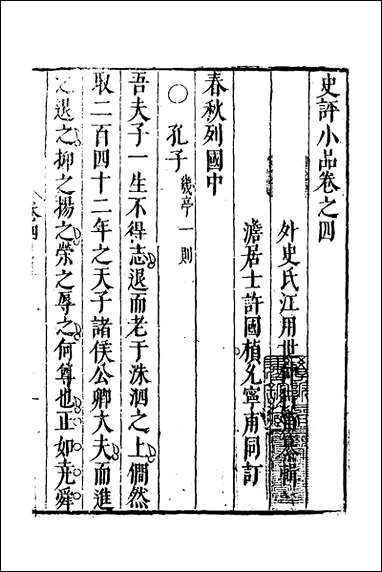 史評小品卷之四
外史氏江用世
澹居士許國楨允寧甫同訂
春秋列國中
○孔子 幾亭一則
吾夫子一生不得志退而老于洙泗之上僩然
取二百四十二年之天子諸侯公卿大夫而進
之退之抑之揚之榮之辱之何尊也正如堯舜